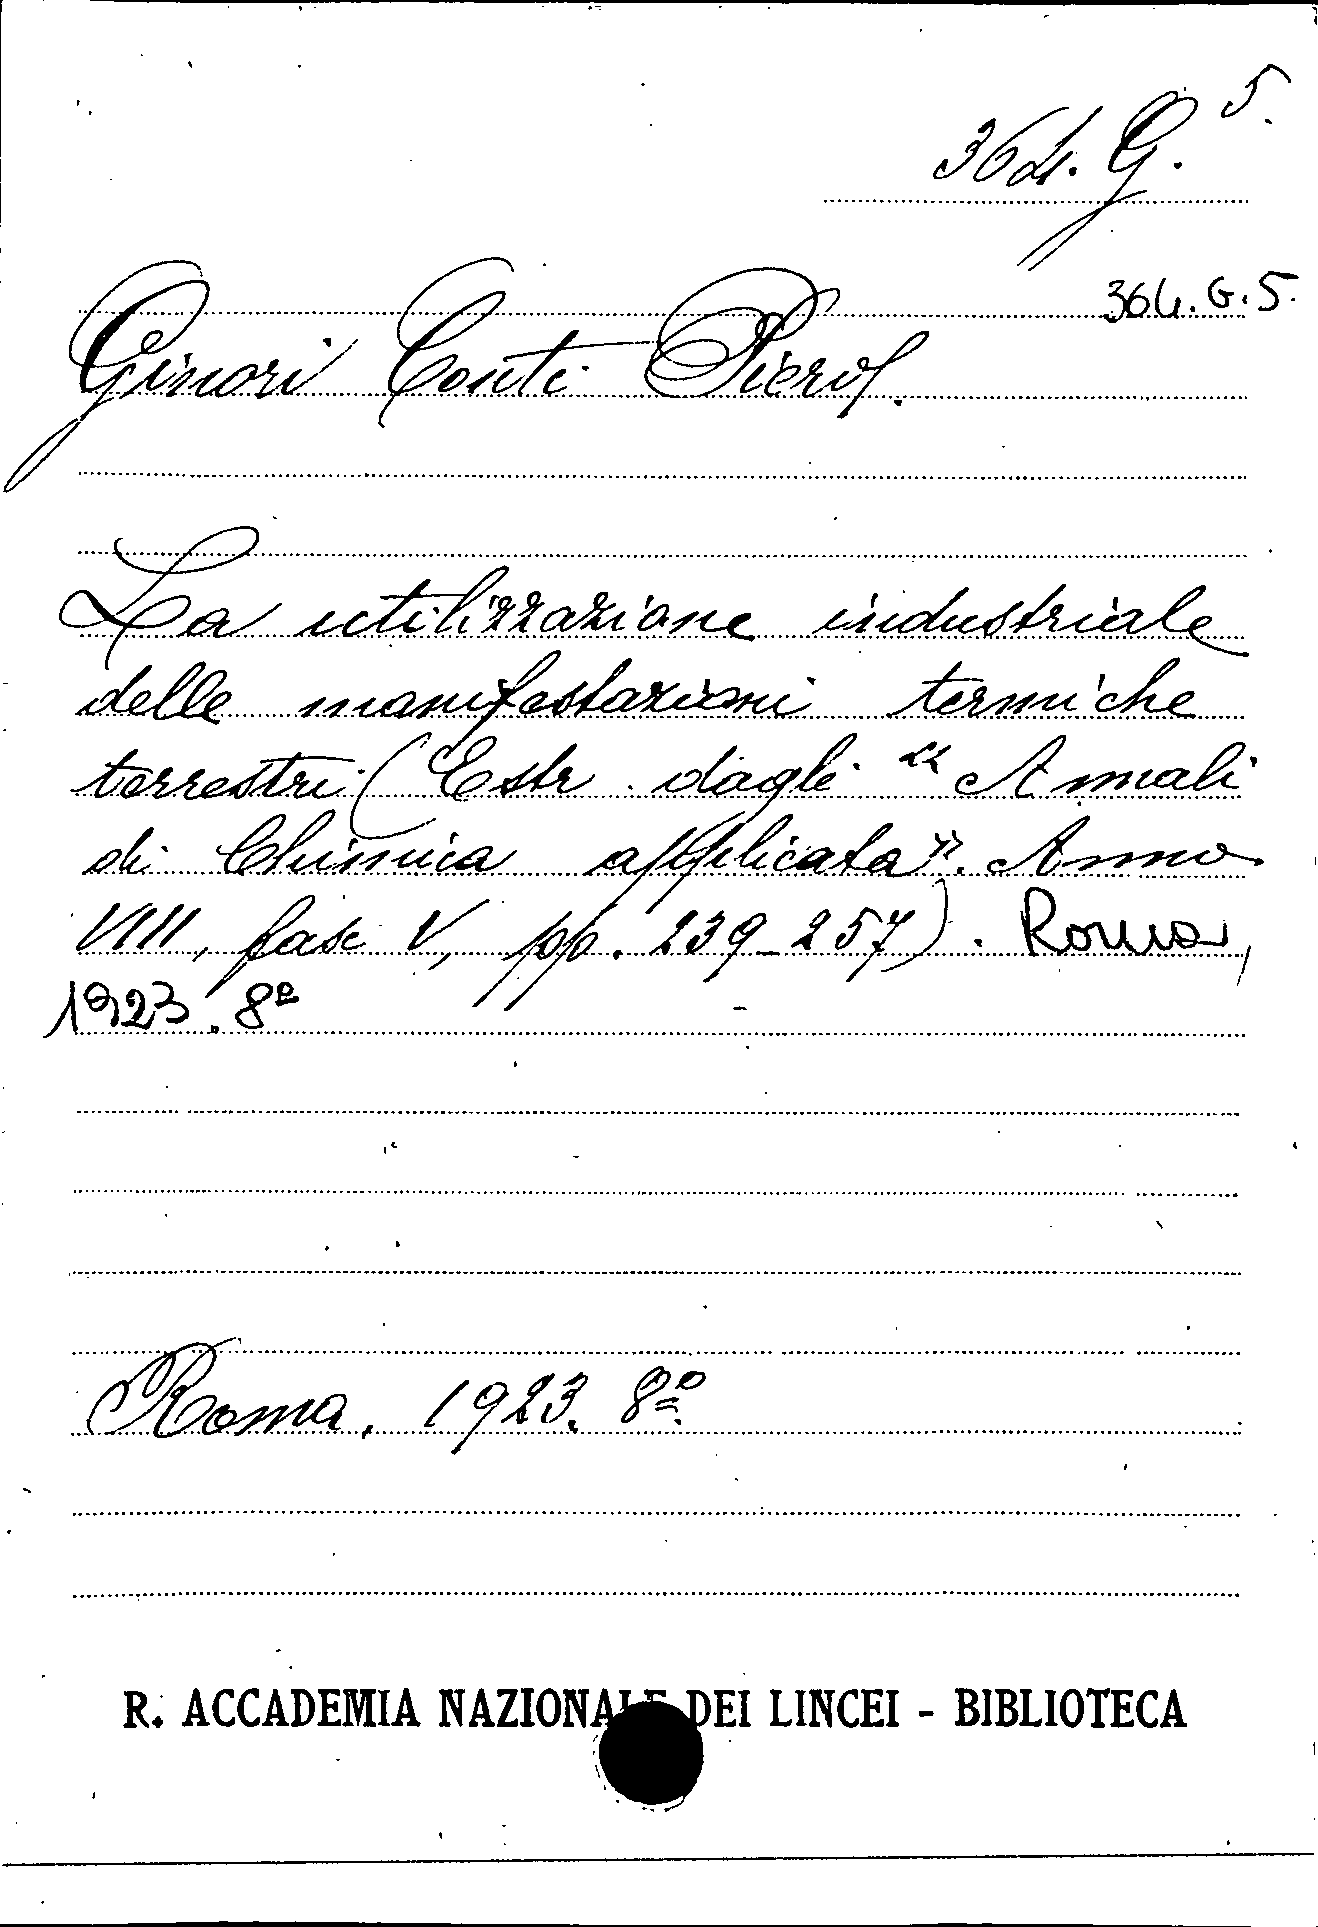 364. G. 5.
364. G. 5.
Ginori Conti Piero.
La utilizzazione industriale
delle manifestazioni termiche
terrestri (Estr. dagli "Annali
di Chimica applicata". Anno
VIII, fasc V, pp. 239-257). Roma,
1923. 8º
Roma, 1923. 8º.
R. ACCADEMIA NAZIONALE DEI LINCEI - BIBLIOTECA